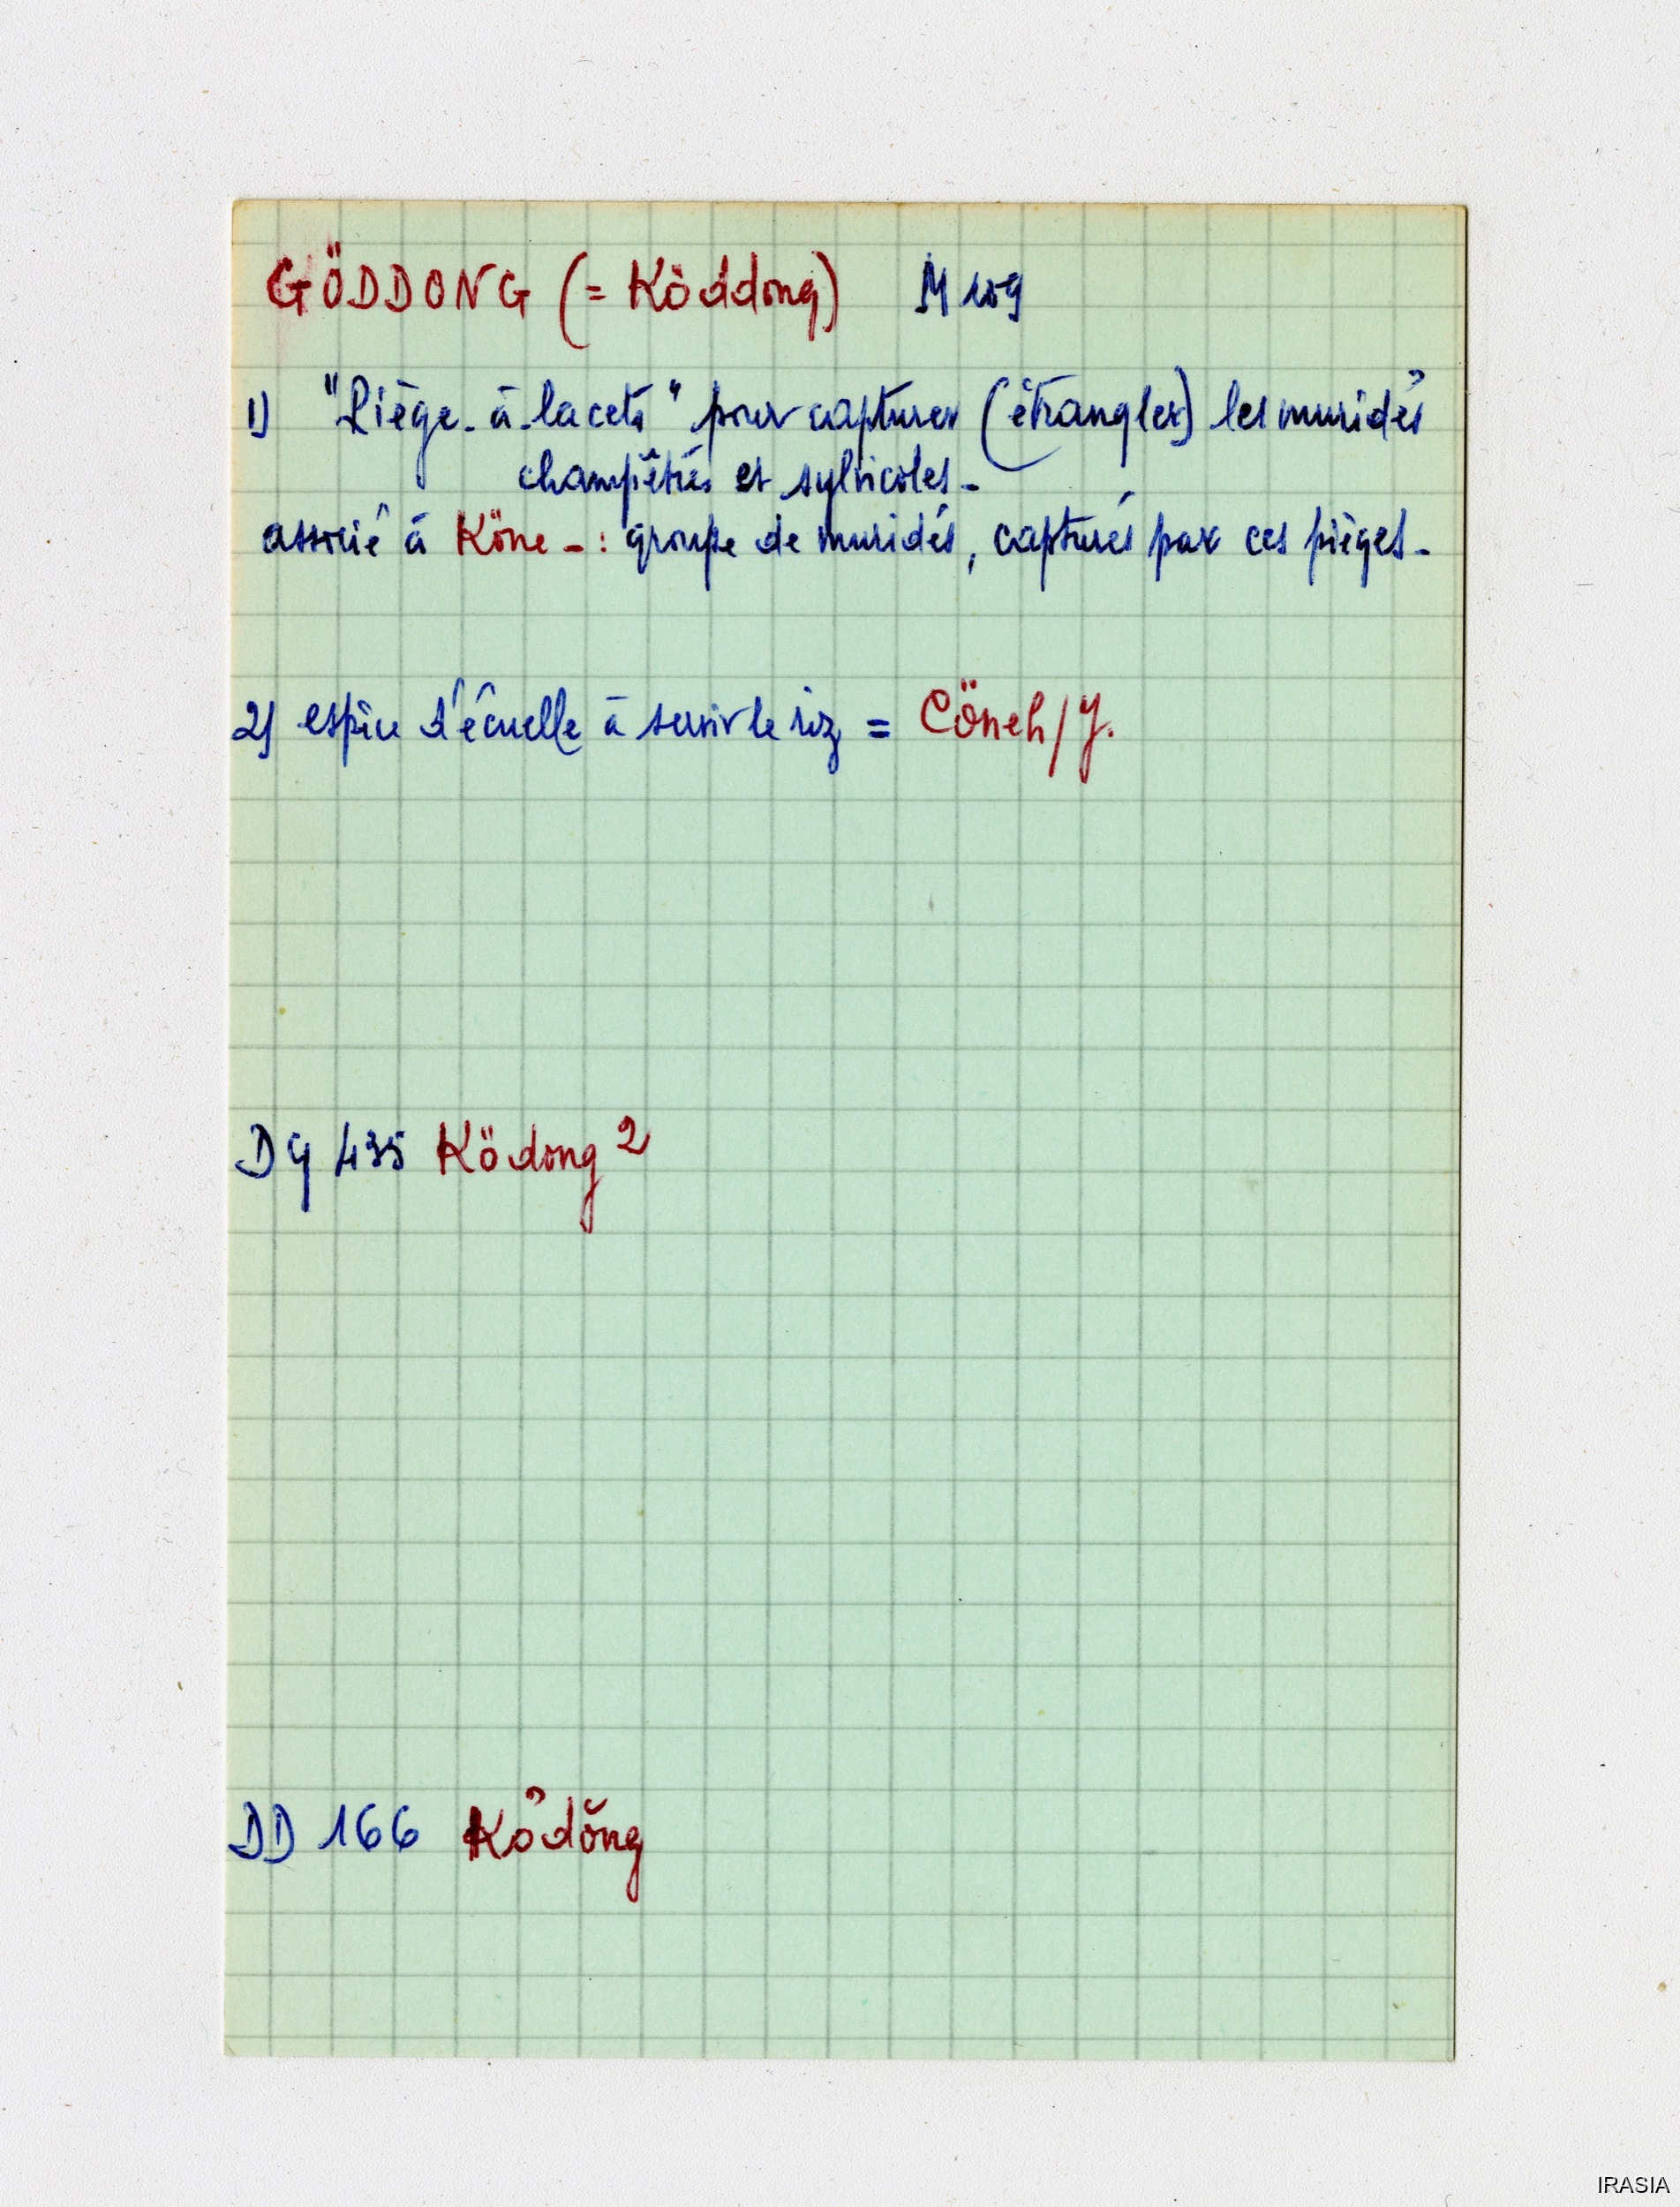 GÖDDONG (= Köddong) M 109
1) "Piège-à-lacets" pour capturer (étrangler) les muridés
champêtres et sylvicoles -
associé à Köne - : groupe de muridés, capturés par ces pièges -
2) espèce d'écuelle à servir le riz = Cöneh / Y.
DY 435 Ködong 2
DD 166 Ködŏng
IRASIA